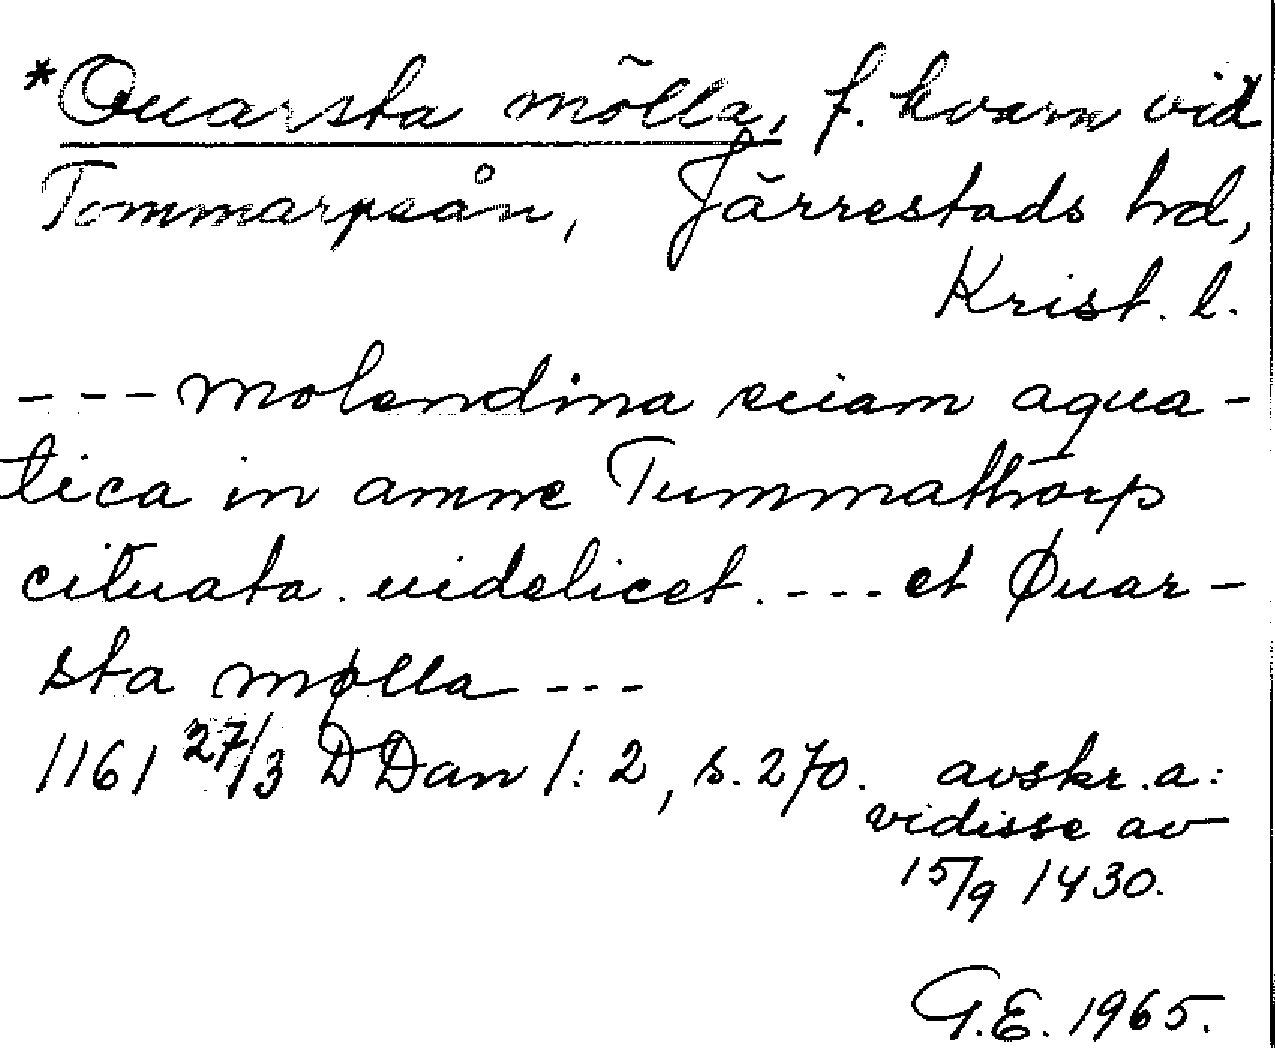 *Quarsta mölla, f. kvarn vid
Tommarpsån, Järrestads hd,
Krist. l.
--- molendina eciam aqua-
tica in amne Tummathorp
cituata. uidelicet. --- et Øuar-
sta mølla ---
1161 27/3 DDan 1:2, s. 270. avskr. a:
vidisse av
15/9 1430.
G.E. 1965.